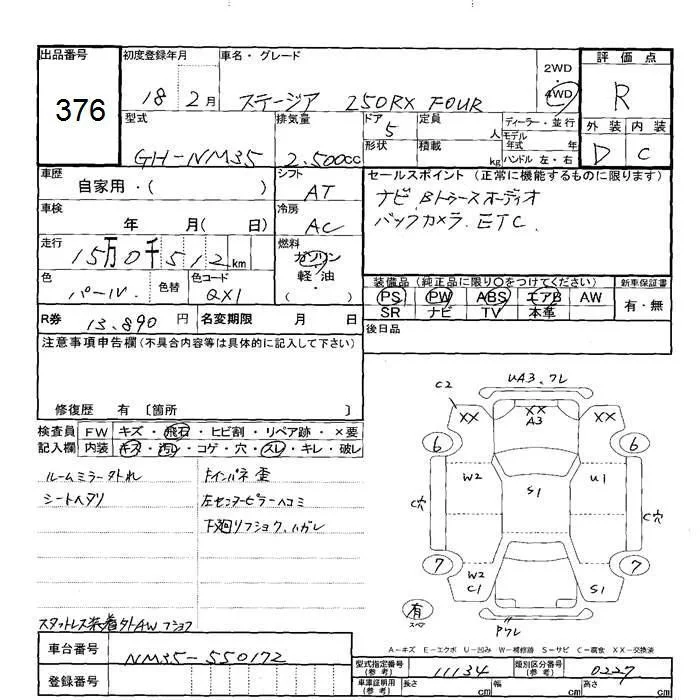 出品番号
376
初度登録年月
18 2月
車名・グレード
ステージア 250RX FOUR
2WD
4WD
評価点
R
外装 内装
D C
型式
GH-NM35
排気量
2.500cc
ドア
5
形状
定員
人
積載
kg
ディーラー・並行
モデル
年式 年
ハンドル 左・右
車歴
自家用・( )
シフト
AT
セールスポイント (正常に機能するものに限ります)
ナビ Bトゥースオーディオ
バックカメラ. ETC.
車検
年 月( 日)
冷房
AC
走行
15万0千512km
燃料
ガソリン
軽油
( )
色
パール.
色替
色コード
QX1
装備品 (純正品に限り〇をつけてください)
PS PW ABS エアB AW
SR ナビ TV 本革
新車保証書
有・無
R券 13.890 円
名変期限 月 日
後日品
注意事項申告欄(不具合内容等は具体的に記入して下さい)
修復歴 有 〔箇所 〕
検査員
記入欄
FW キズ・飛石・ヒビ割・リペア跡・×要
内装 キズ・汚レ・コゲ・穴・スレ・キレ・破レ
ルームミラー外れ
シートヘタリ
ドインパネ 歪
左センターピラーヘコミ
下廻りフショク、ハガレ
スタットレス装着 外AWフショク
C2
UA3、ワレ
XX
XX
A3
XX
6
6
W2
S1
U1
C穴
C穴
7
7
W2
C1
S1
有
スペア
Pワレ
A-キズ E-エクボ U-凹み W-補修跡 S-サビ C-腐食 XX-交換済
車台番号
NM35-550172
登録番号
型式指定番号
(参考)
11134
類別区分番号
(参考)
0227
車庫証明用
(参考)
長さ cm
幅 cm
高さ cm